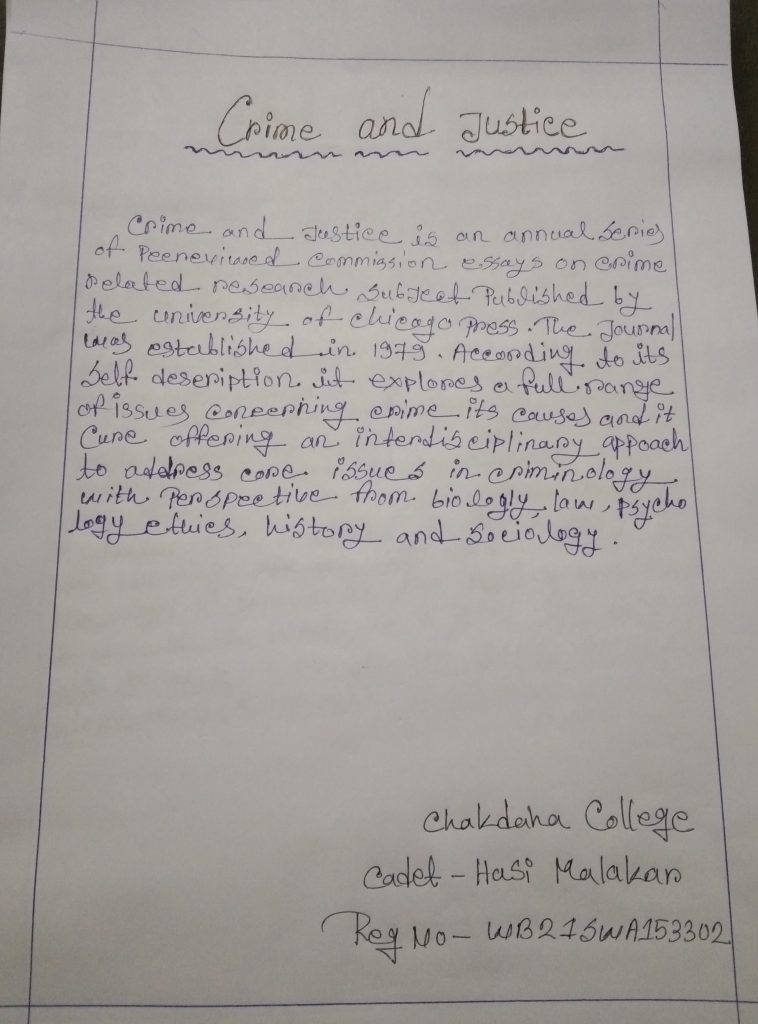 Crime and Justice
Crime and Justice is an annual series
of Peereviewed Commission essays on crime
related research Subject Published by
the university of chicago press. The Journal
was established in 1979. According to its
Self description it explores a full range
of issues concerning crime its causes and it
Cure offering an interdisciplinary appoach
to address core issues in criminology
with Perspective from biologly, law, psycho
logy ethics, history and Sociology.
Chakdaha College
Cadet - Hasi Malakar
Reg No - WB21SWA153302